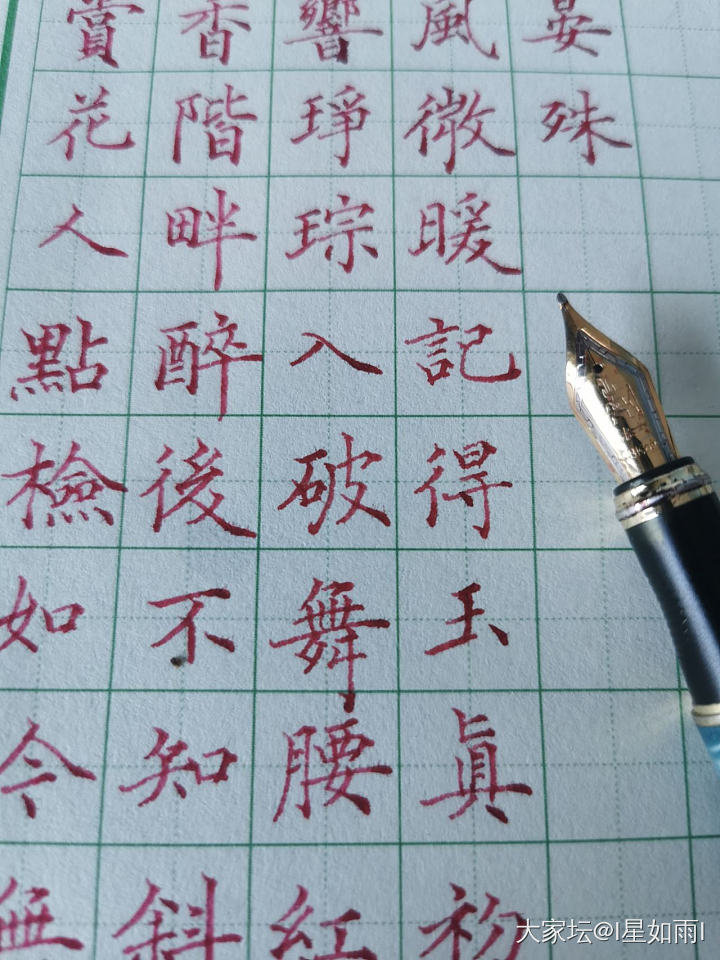 晏殊
風微暖記得玉眞初
響琤琮入破舞腰紅
香階畔醉後不知斜
賞花人點檢如今無
大家坛@I星如雨I